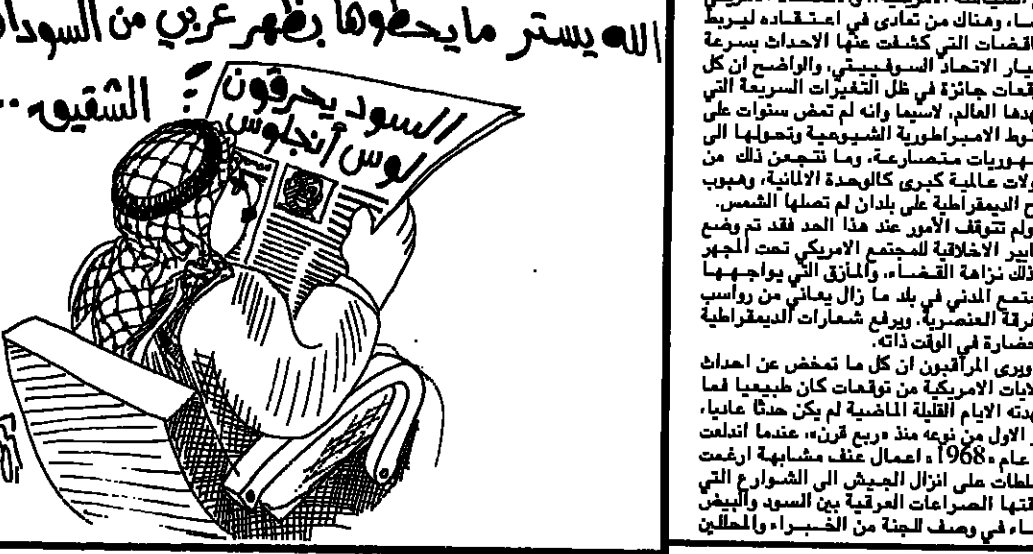 الله يستر مايحطوها بظهر عربي من السودان
الشقيق..
السود يحرقون
لوس أنجلوس
ا، وهناك من تمادى في اعتقاده ليربط
اقضات التي كشفت عنها الاحداث بسرعة
يار الاتحاد السوفييتي، والواضح ان كل
قعات جائزة في ظل التغيرات السريعة التي
هدها العالم، لاسيما وانه لم تمض سنوات على
وط الامبراطورية الشيوعية وتحولها الى
هوريات متصارعة، وما نتجعن ذلك من
ولات عالمية كبرى كالوحدة الالمانية، وهبوب
ح الديمقراطية على بلدان لم تصلها الشمس.
ولم تتوقف الأمور عند هذا الحد فقد تم وضع
ايير الاخلاقية للمجتمع الامريكي تحت المجهر
ذلك نزاهة القضاء، والمأزق التي يواجهها
جتمع المدني في بلد ما زال يعاني من رواسب
فرقة العنصرية. ويرفع شعارات الديمقراطية
حضارة في الوقت ذاته.
ويرى المراقبون ان كل ما تمخض عن احداث
لايات الامريكية من توقعات كان طبيعيا فما
هدته الايام القليلة الماضية لم يكن حدثا عاديا،
و الاول من نوعه منذ «ربع قرن»، عندما اندلعت
عام «1968» اعمال عنف مشابهة ارغمت
لطات على انزال الجيش الى الشوارع التي
قتها الصراعات العرقية بين السود والبيض
اء في وصف للجنة من الخبراء والمحللين